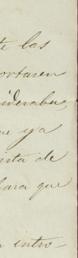 te las
ortasen
siderabu
ue ya
sta de
para que
a intro-